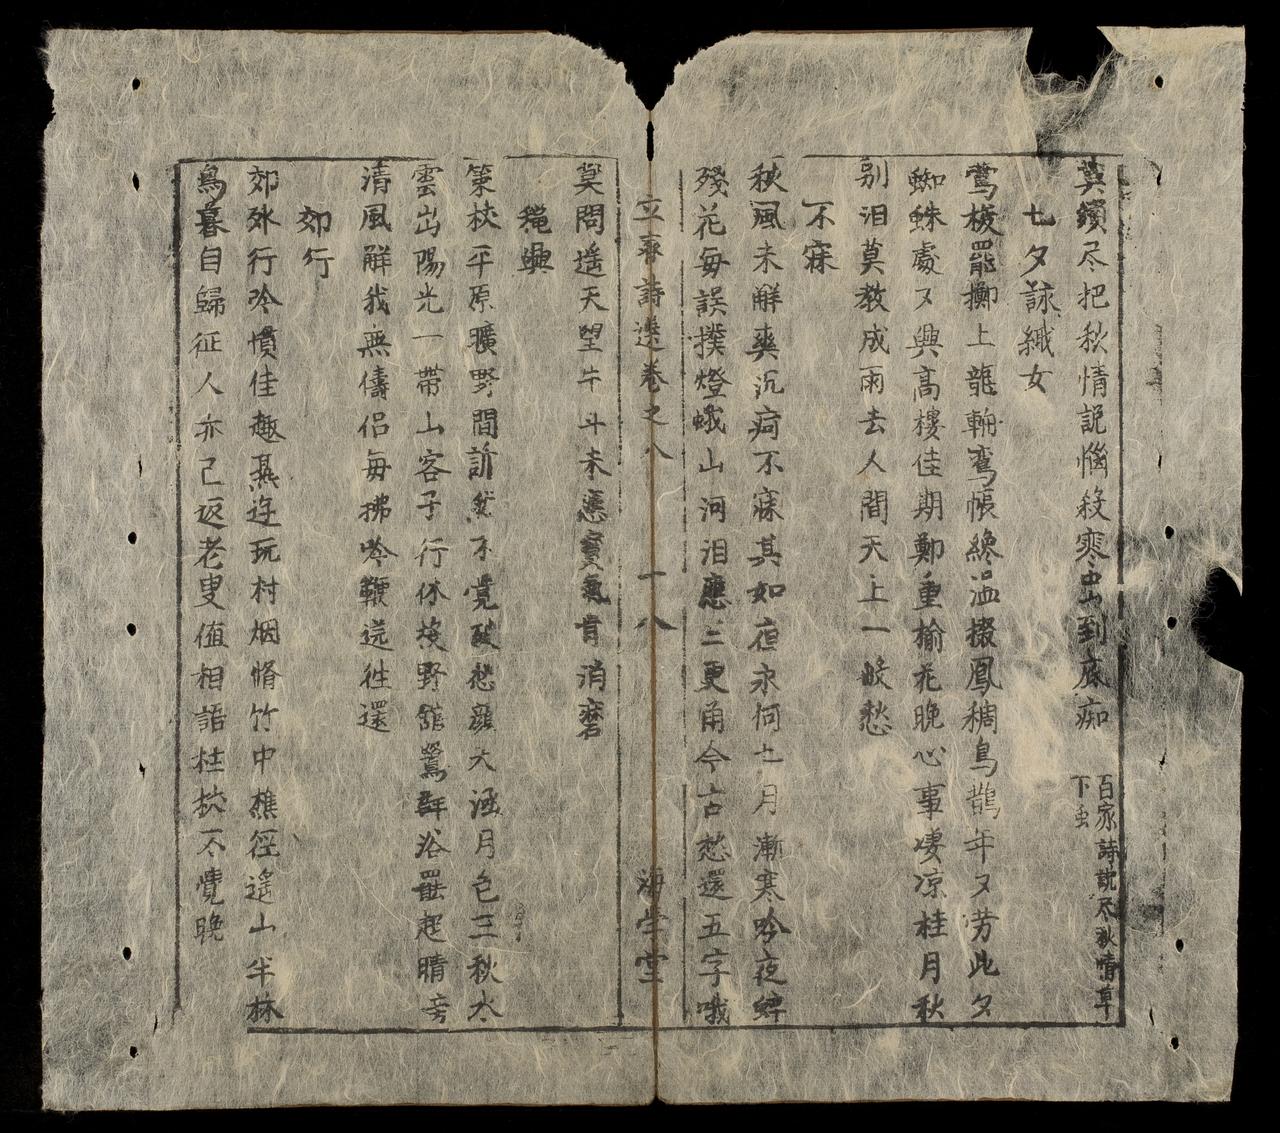 蓂續尽把秋情說惱殺寒虫到底痴
百家詩說尽秋情草
下虫
七夕詠織女
鶯梭罷擲上龍輈鸞帳纔温掇鳳稠烏鵲年又労此夕
蜘蛛處又興高樓佳期鄭重榆花晚心事凄凉桂月秋
別泪莫教成雨去人間天上一般愁
不寐
秋風未解爽沉疴不寐其如夜永何七月漸寒吟夜蟀
殘花每誤撲燈蛾山河泪應三更甬今古愁還五字哦
立齋詩選卷之八
十八
海学堂
莫問遥天望牛斗未應寳氣肯消磨
穐興
策杖平原曠野間訢然不覚破愁顔大涵月色三秋水
雲出陽光一帶山客子行休投野舘鴛群浴罷起晴
清風解我無儔侣每拂吟鞭送徃還
郊行
郊外行吟慣佳趣爲迃玩村烟脩竹中樵徑遙山半林
鳥暮自歸征人亦已返老叟值相語柱杖不覺晚